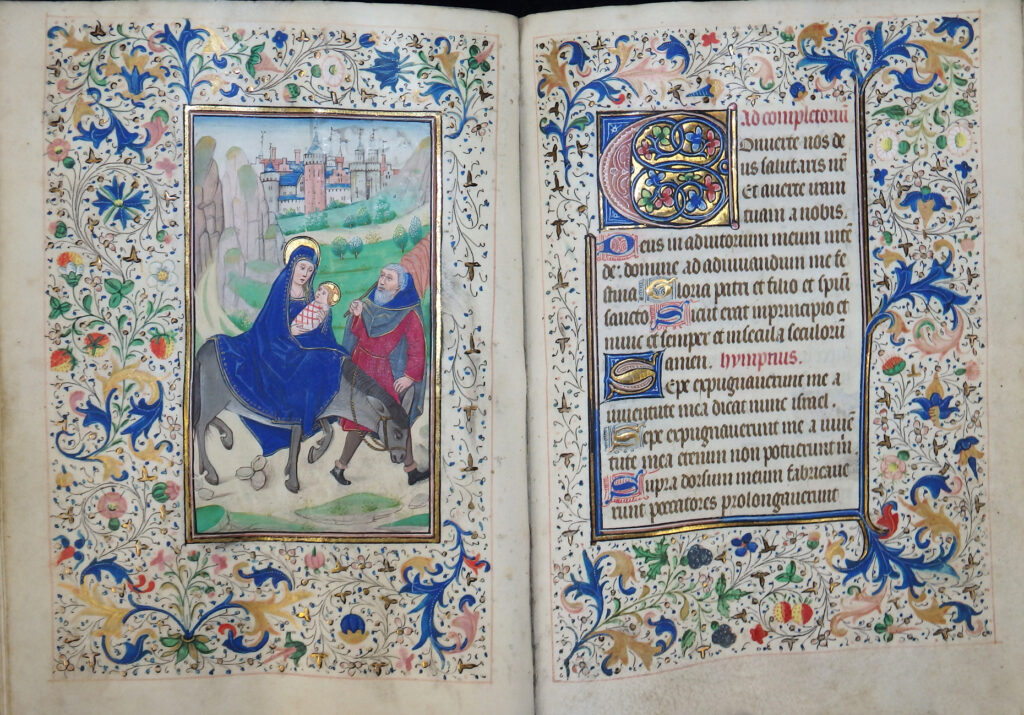 Ad completoriū
Conuerte nos de
us salutaris nr̄
Et auerte iram
tuam a nobis.
Deus in adiutorium meum inte
de. domine ad adiuuandum me fe
stina Gloria patri et filio et spiū
sancto Sicut erat in principio et
nunc et semper et in secula seculorū
amen. hympnus.
Sepe expugnauerunt me a
iuuentute mea dicat nunc israel
Sepe expugnauerunt me a iuuē
tute mea etenim non potuerunt m̄
Supra dorsum meum fabricaue
runt peccatores prolongauerunt